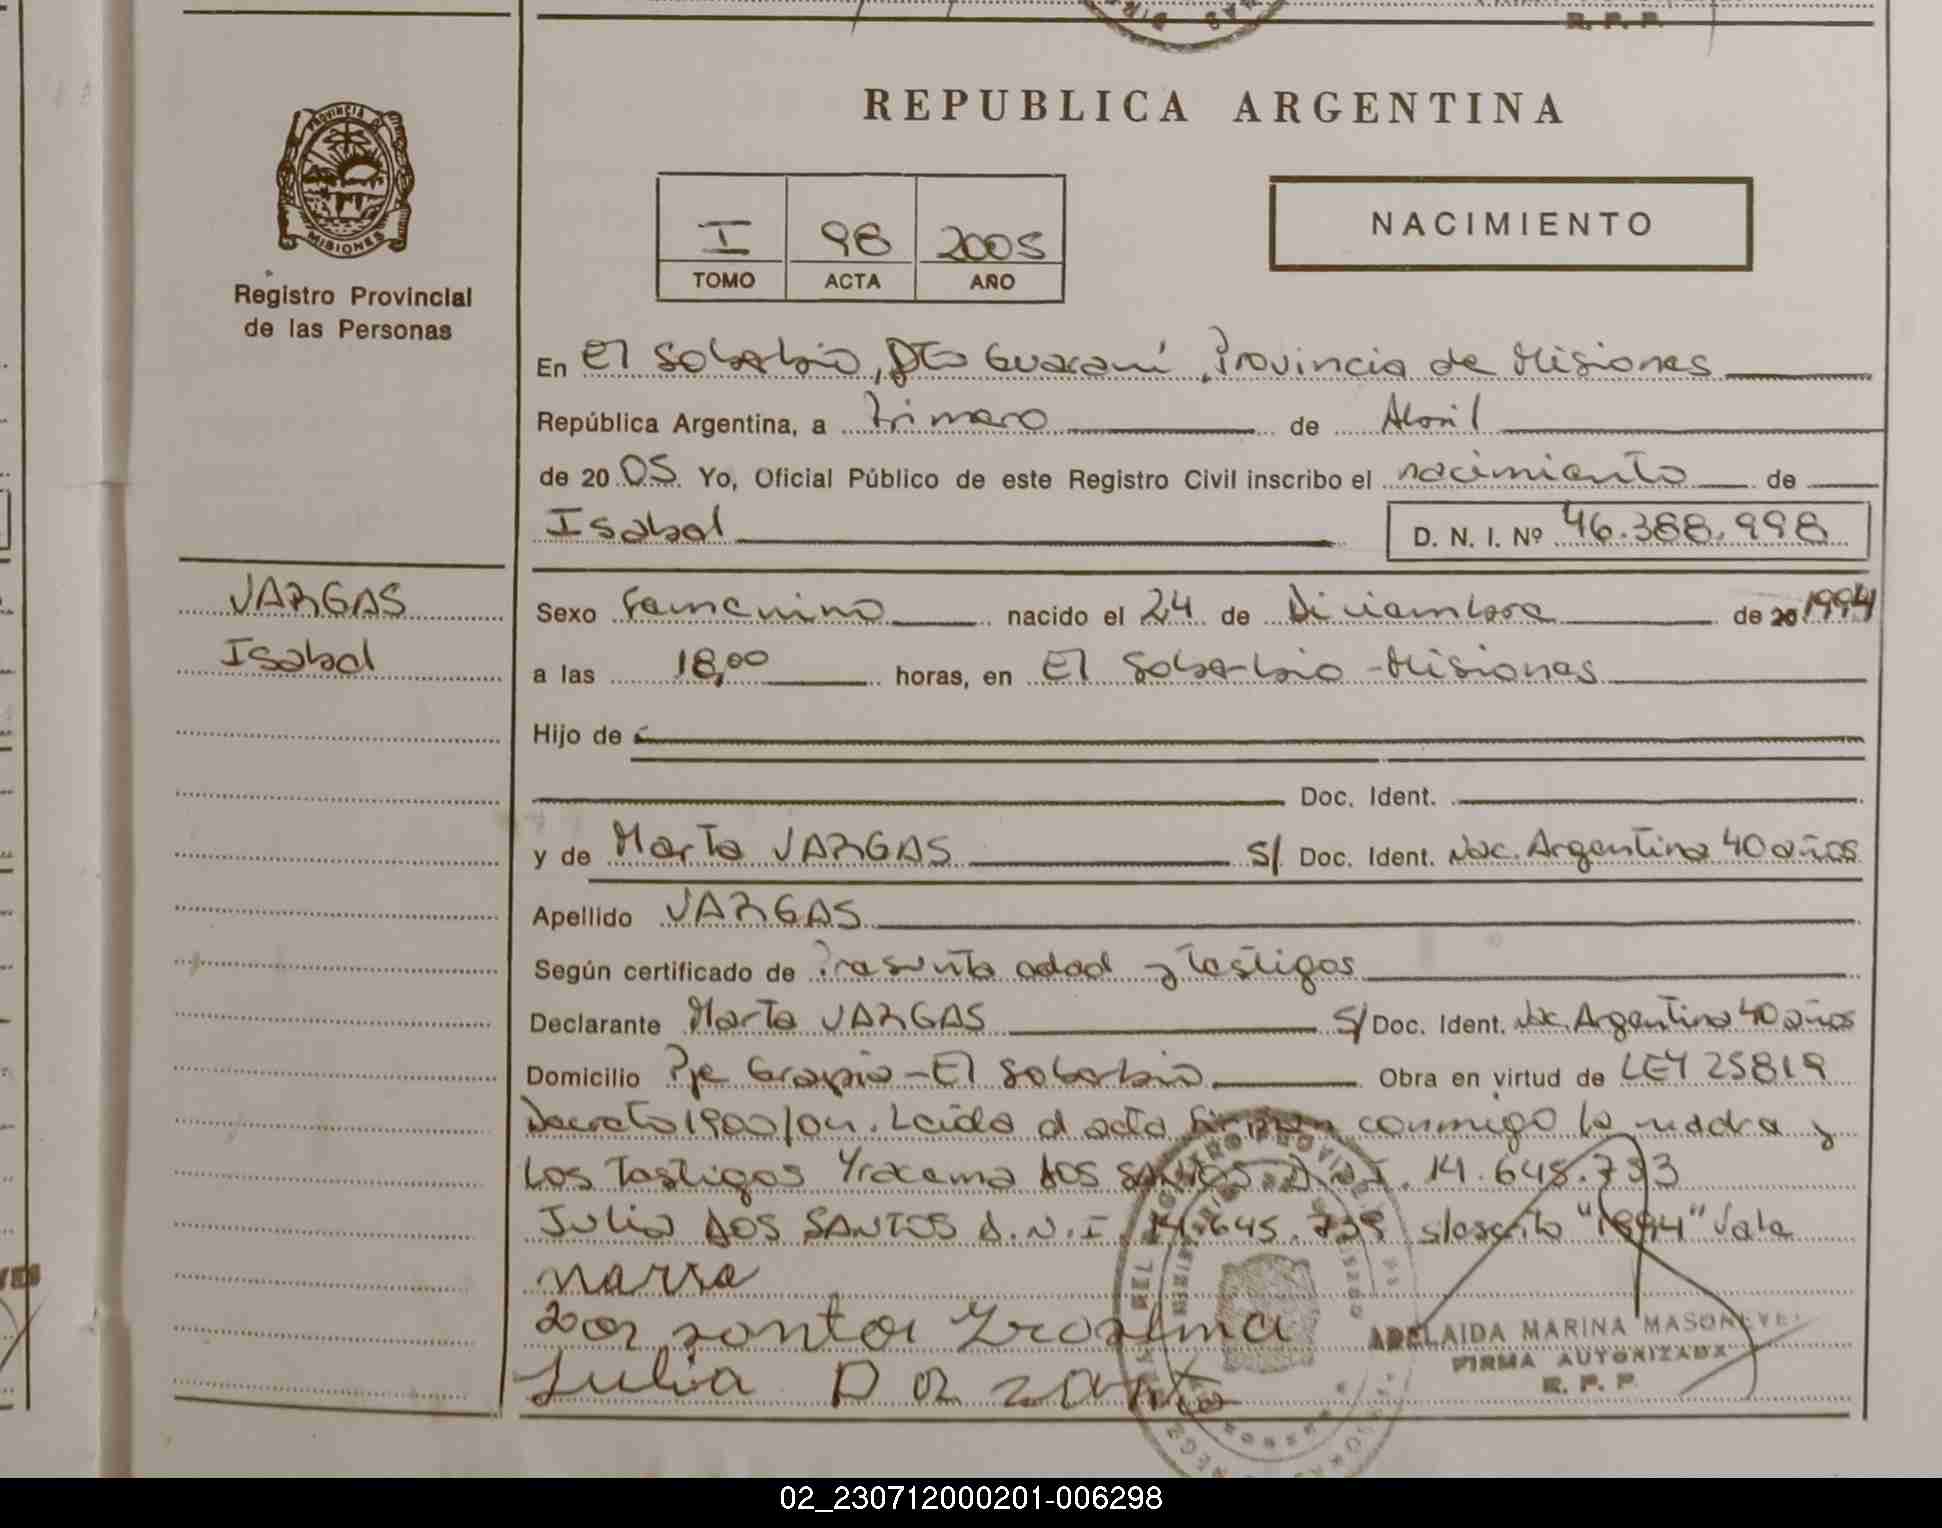 R. P. P.
PROVINCIA DE
MISIONES
Registro Provincial
de las Personas
REPUBLICA ARGENTINA
I 98 2005
TOMO ACTA AÑO
NACIMIENTO
En El Soberbio, Dto Guaraní Provincia de Misiones
República Argentina, a Primero de Abril
de 20 05 Yo, Oficial Público de este Registro Civil inscribo el nacimiento de
Isabel D. N. I. Nº 46.388.998
VARGAS
Isabel
Sexo Femenino nacido el 24 de Diciembre de 20 1994
a las 18,00 horas, en El Soberbio - Misiones
Hijo de
Doc. Ident.
y de Marta VARGAS S/ Doc. Ident. Nac. Argentina 40 años
Apellido VARGAS
Según certificado de Presunta edad y Testigos
Declarante Marta VARGAS S/ Doc. Ident. Nac. Argentina 40 años
Domicilio Pje Grapia - El Soberbio Obra en virtud de LEY 25819
Decreto 1900/04. Leída el acta firman conmigo la madre y
los Testigos Yracema DOS SANTOS D.N.I. 14.645.733
Julia DOS SANTOS D.N.I. 14.645.739 s/escrito "1994" Vale
Dos santos
Julia
ADELAIDA MARINA
FIRMA AUTORIZADA
R. P. P.
02_230712000201-006298